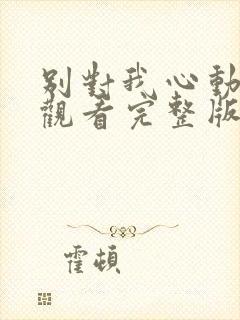 別對我心動
觀看完整版
霍頓